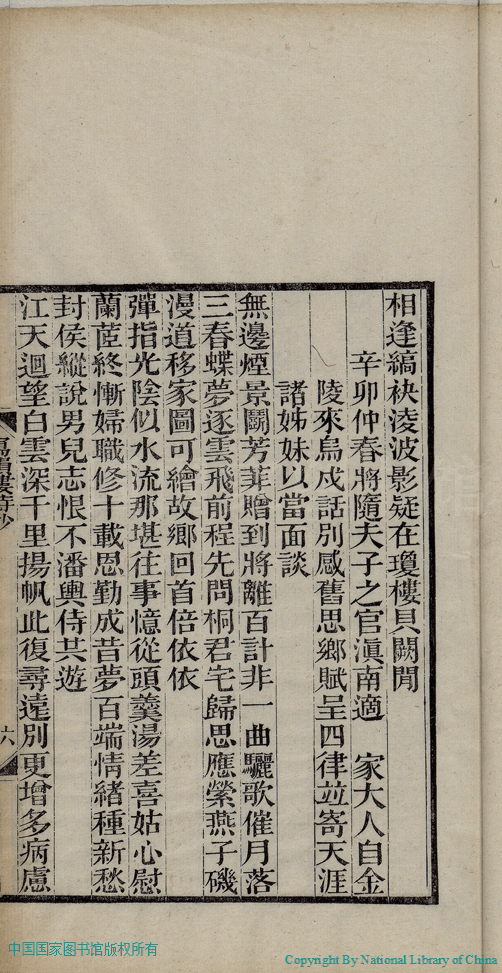 相逢縞袂淩波影疑在瓊樓貝闕閒
辛卯仲春將隨夫子之官滇南適　家大人自金
陵來烏戍話別感舊思鄉賦呈四律並寄天涯
諸姊妹以當面談
無邊煙景鬭芳菲贈到將離百計非一曲驪歌催月落
三春蝶夢逐雲飛前程先問桐君宅歸思應縈燕子磯
漫道移家圖可繪故鄉回首倍依依
彈指光陰似水流那堪往事憶從頭羹湯差喜姑心慰
蘭茝終慚婦職修十載恩勤成昔夢百端情緒種新愁
封侯縱說男兒志恨不潘輿侍其遊
江天迴望白雲深千里揚帆此復尋遠別更增多病慮
六
中国国家图书馆版权所有
Copyright By National Library of China